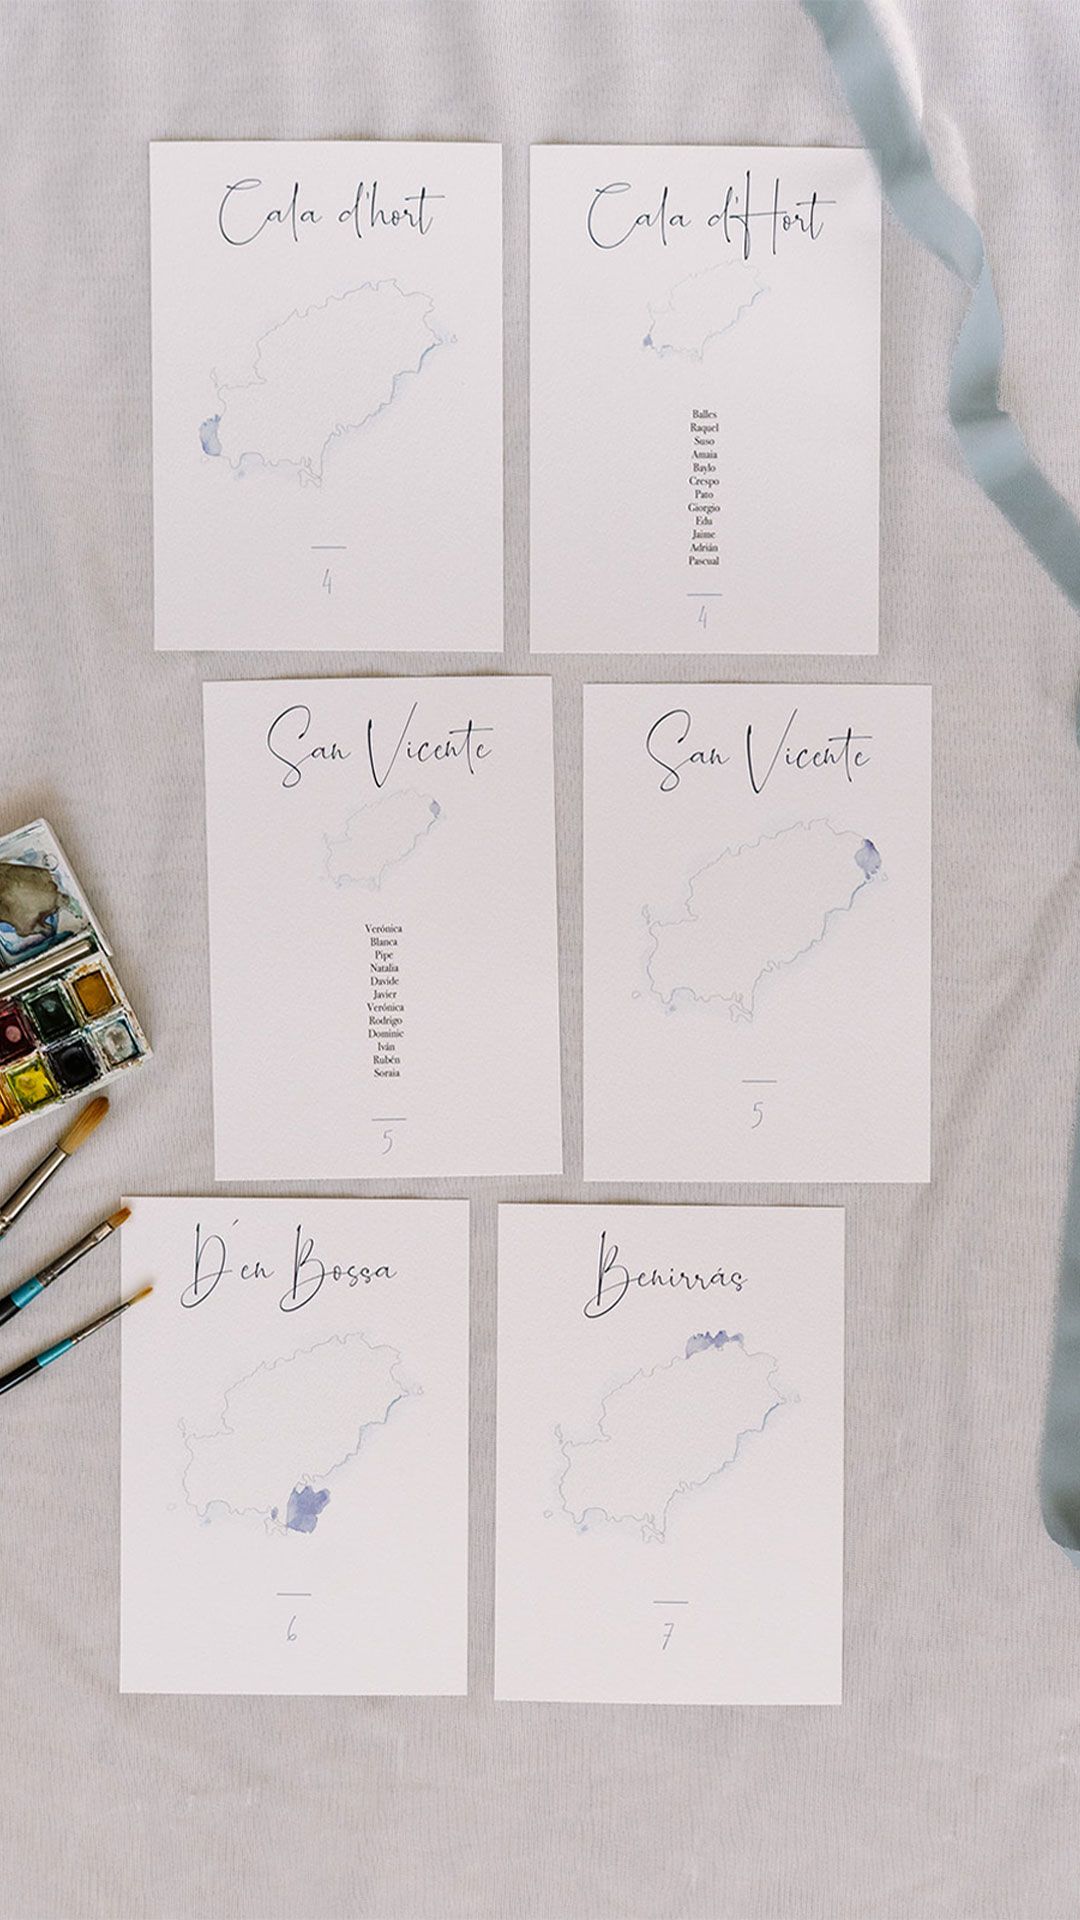 Cala d'hort
4
Cala d'Hort
Balles
Raquel
Suso
Amaia
Baylo
Crespo
Pato
Giorgio
Edu
Jaime
Adrián
Pascual
4
San Vicente
Verónica
Blanca
Pipe
Natalia
Davide
Javier
Verónica
Rodrigo
Dominic
Iván
Rubén
Soraia
5
San Vicente
5
D´en Bossa
6
Benirrás
7